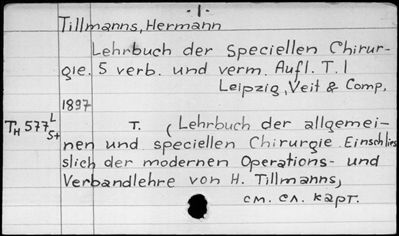 -1-
Tillmanns, Hermann
Lehrbuch der speciellen Chirur-
gie. 5 verb. und verm. Aufl. T. I
Leipzig, Veit & Comp,
1897
TH 577 L
St
T. (Lehrbuch der allgemei-
nen und speciellen Chirurgie Einschlies
slich der modernen Operations- und
Verbandlehre von H. Tillmanns,
см. сл. карт.